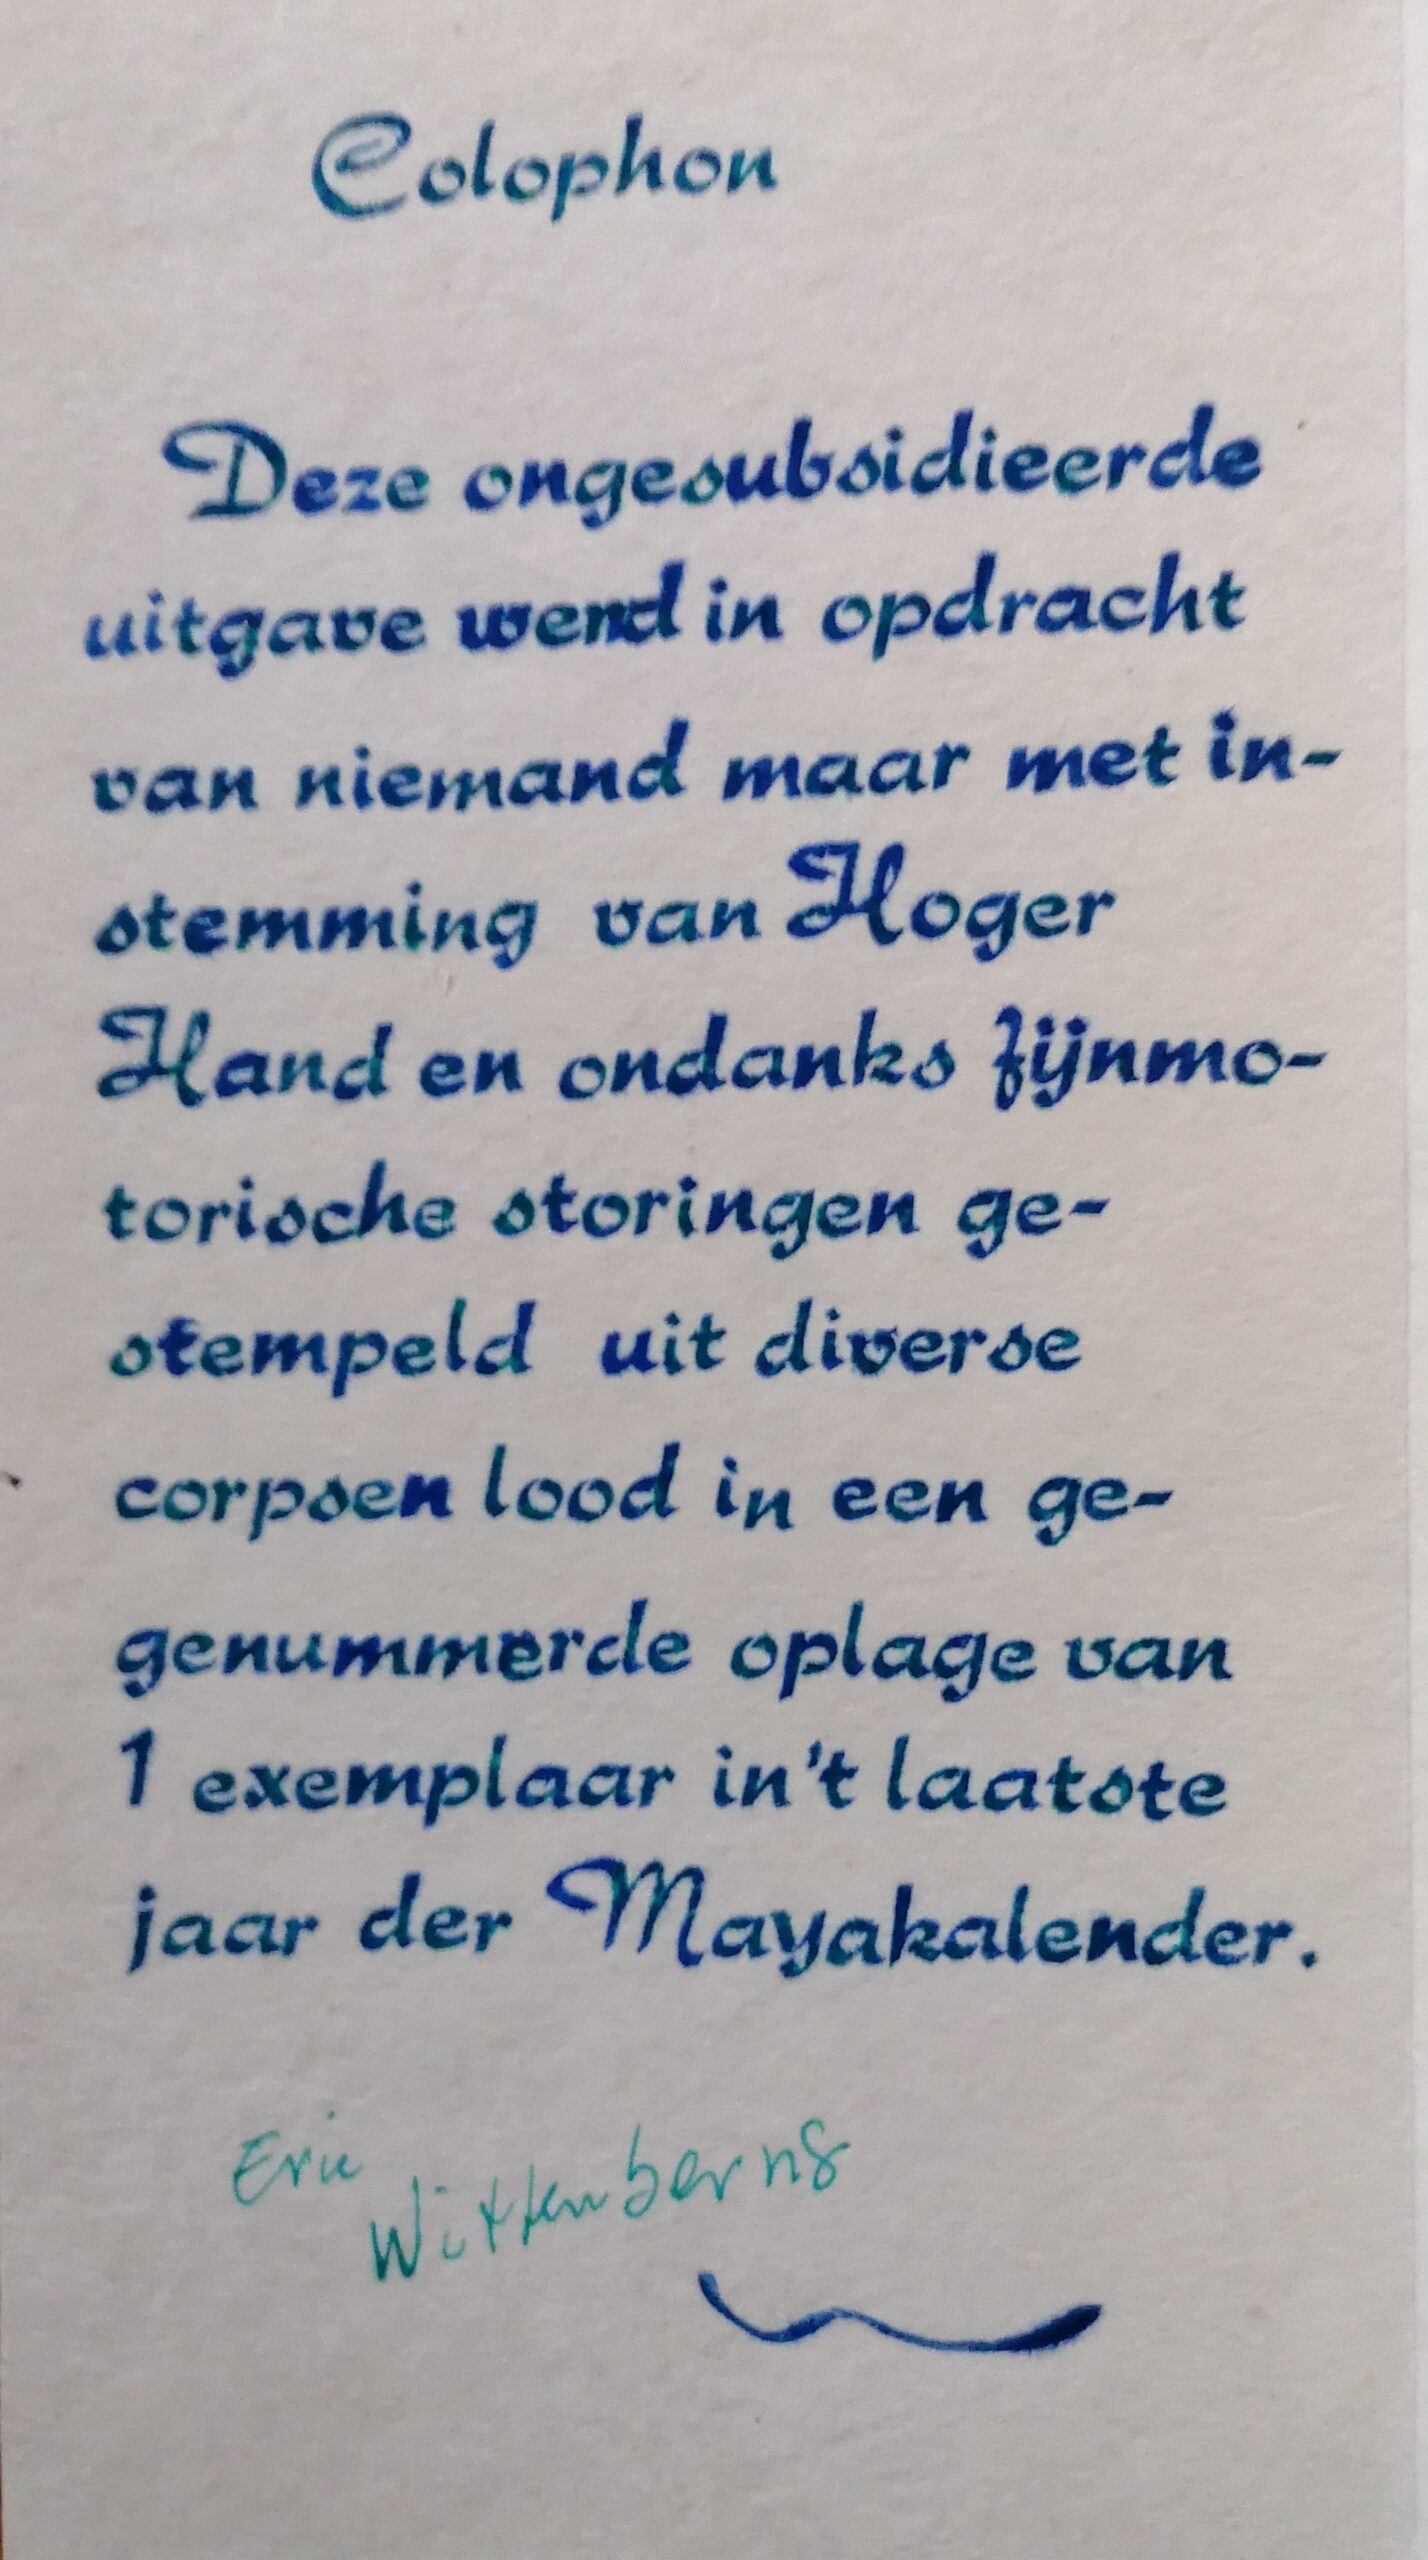 Colophon
Deze ongesubsidieerde
uitgave werd in opdracht
van niemand maar met in-
stemming van Hoger
Hand en ondanks fijnmo-
torische storingen ge-
stempeld uit diverse
corpsen lood in een ge-
genummerde oplage van
1 exemplaar in't laatste
jaar der Mayakalender.
Eric
Wittenberns